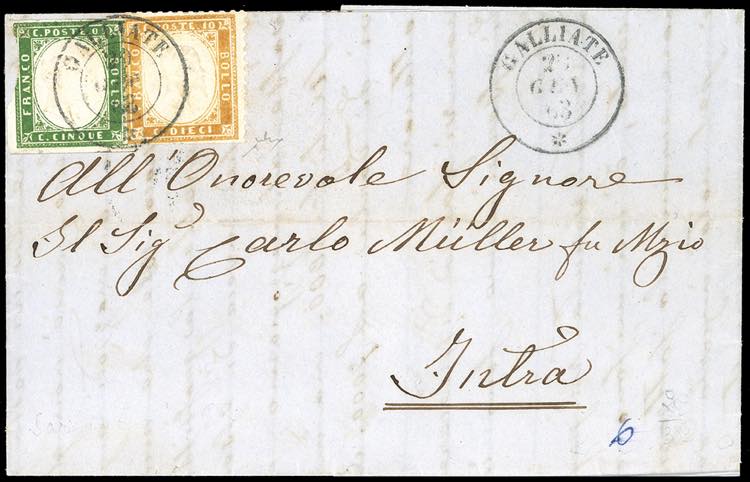 C. POSTE 5
FRANCO
BOLLO
C. CINQUE
C. POSTE 10
BOLLO
C. DIECI
GALLIATE
GALLIATE
GEN
63
*
All' Onorevole Signore
Il Sig.r Carlo Müller fu
Intra
6